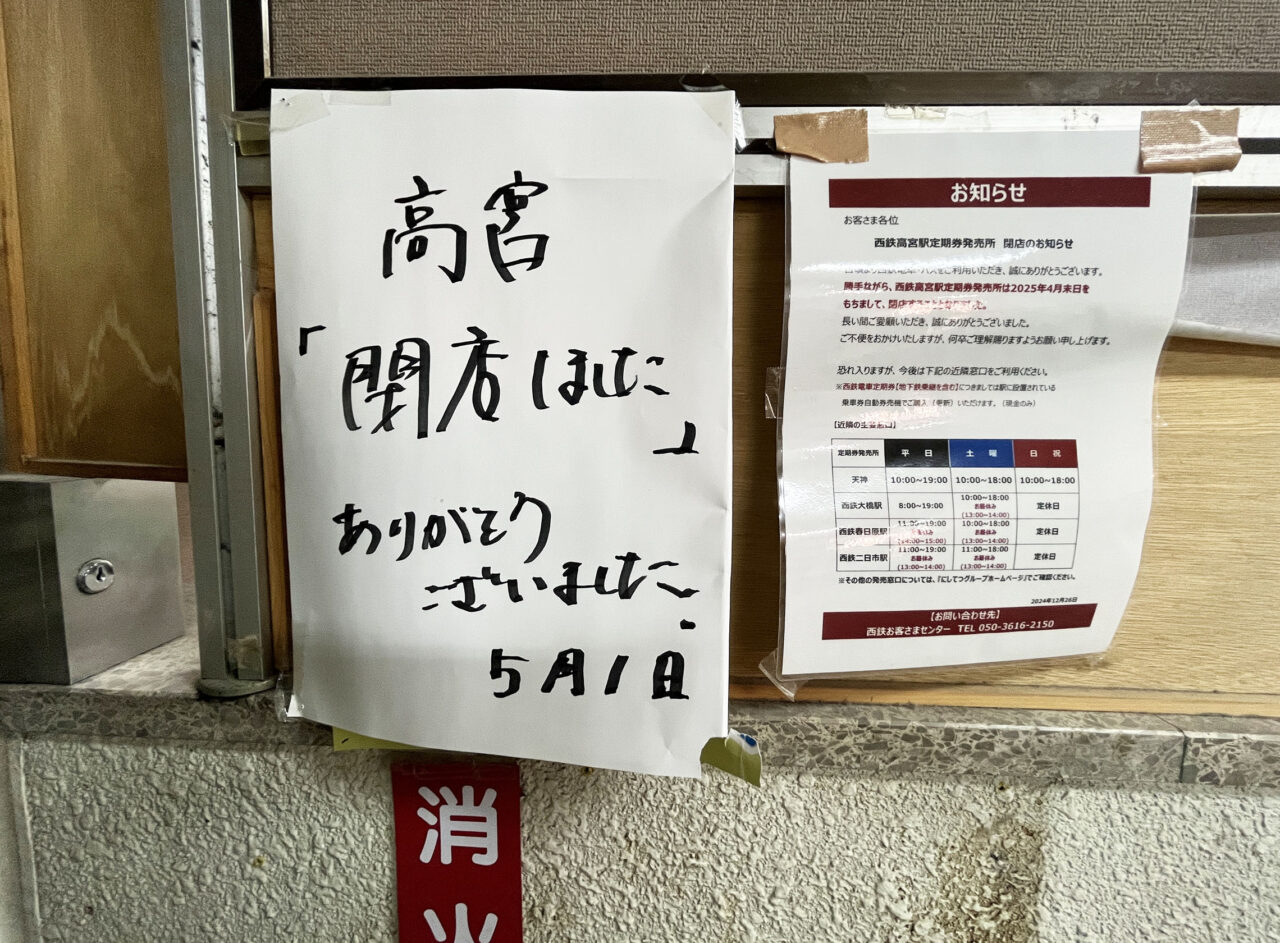 高宮
「閉店しました」
ありがとう
ございました。
5月1日
お知らせ
お客さま各位
西鉄高宮駅定期券発売所 閉店のお知らせ
日頃より西鉄電車・バスをご利用いただき、誠にありがとうございます。
勝手ながら、西鉄高宮駅定期券発売所は2025年4月末日を
もちまして、閉店することとなりました。
長い間ご愛顧いただき、誠にありがとうございました。
ご不便をおかけいたしますが、何卒ご理解賜りますようお願い申し上げます。
恐れ入りますが、今後は下記の近隣窓口をご利用ください。
※西鉄電車定期券【地下鉄乗継を含む】につきましては駅に設置されている
乗車券自動券売機でご購入（更新）いただけます。（現金のみ）
【近隣の主要窓口】
定期券発売所 平日 土曜 日祝
天神 10:00~19:00 10:00~18:00 10:00~18:00
西鉄大橋駅 8:00~19:00 10:00~18:00 お昼休み (13:00~14:00) 定休日
西鉄春日原駅 11:00~19:00 お昼休み (14:00~15:00) 10:00~18:00 お昼休み (13:00~14:00) 定休日
西鉄二日市駅 11:00~19:00 お昼休み (13:00~14:00) 11:00~18:00 お昼休み (13:00~14:00) 定休日
※その他の発売窓口については、『にしてつグループホームページ』でご確認ください。
2024年12月26日
【お問い合わせ先】
西鉄お客さまセンター TEL 050-3616-2150
消
火